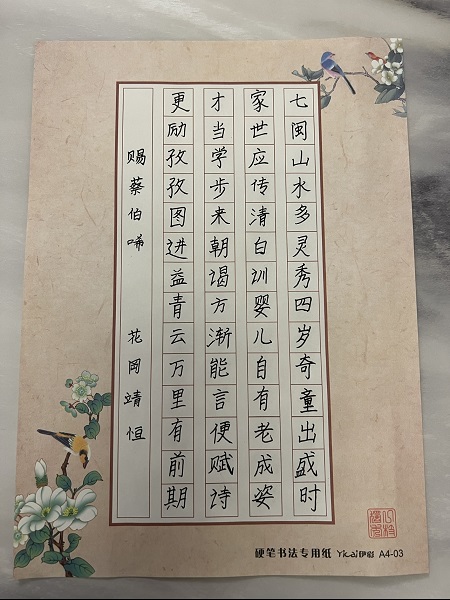 七闽山水多灵秀四岁奇童出盛时
家世应传清白训婴儿自有老成姿
才当学步来朝谒方渐能言便赋诗
更励孜孜图进益青云万里有前期
赐蔡伯唏 花冈靖恒
硬笔书法专用纸 Yicai伊彩 A4-03